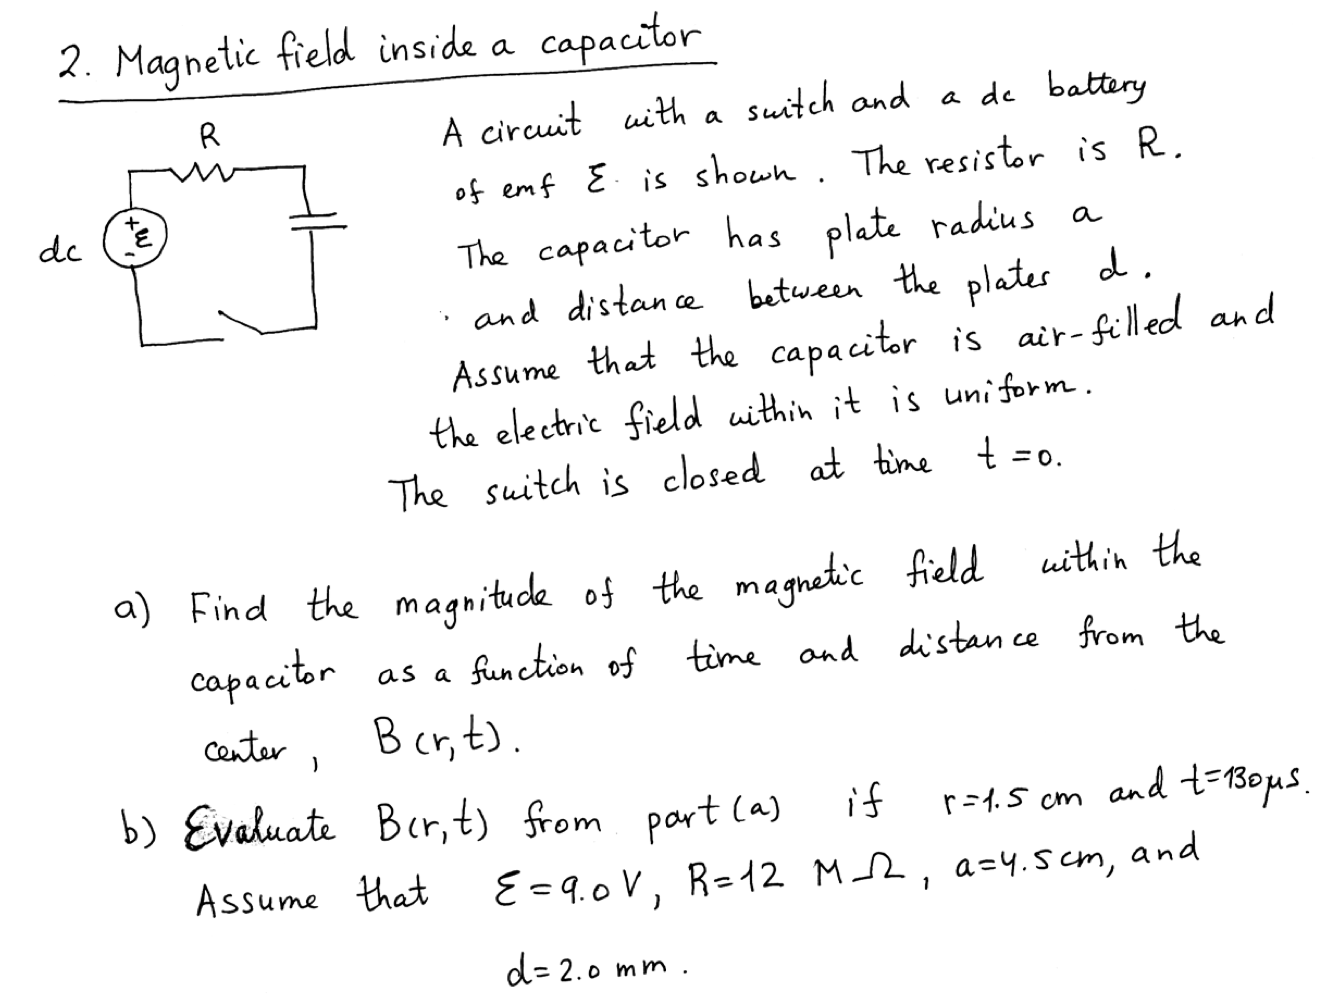 2. Magnetic field inside a capacitor
R
dc
+
ε
-
A circuit with a switch and a dc battery
of emf ε is shown. The resistor is R.
The capacitor has plate radius a
and distance between the plates d.
Assume that the capacitor is air-filled and
the electric field within it is uniform.
The switch is closed at time t=0.
a) Find the magnitude of the magnetic field within the
capacitor as a function of time and distance from the
center, B(r,t).
b) Evaluate B(r,t) from part (a) if r=1.5 cm and t=130μs.
Assume that ε=9.0V, R=12 MΩ, a=4.5cm, and
d=2.0 mm.